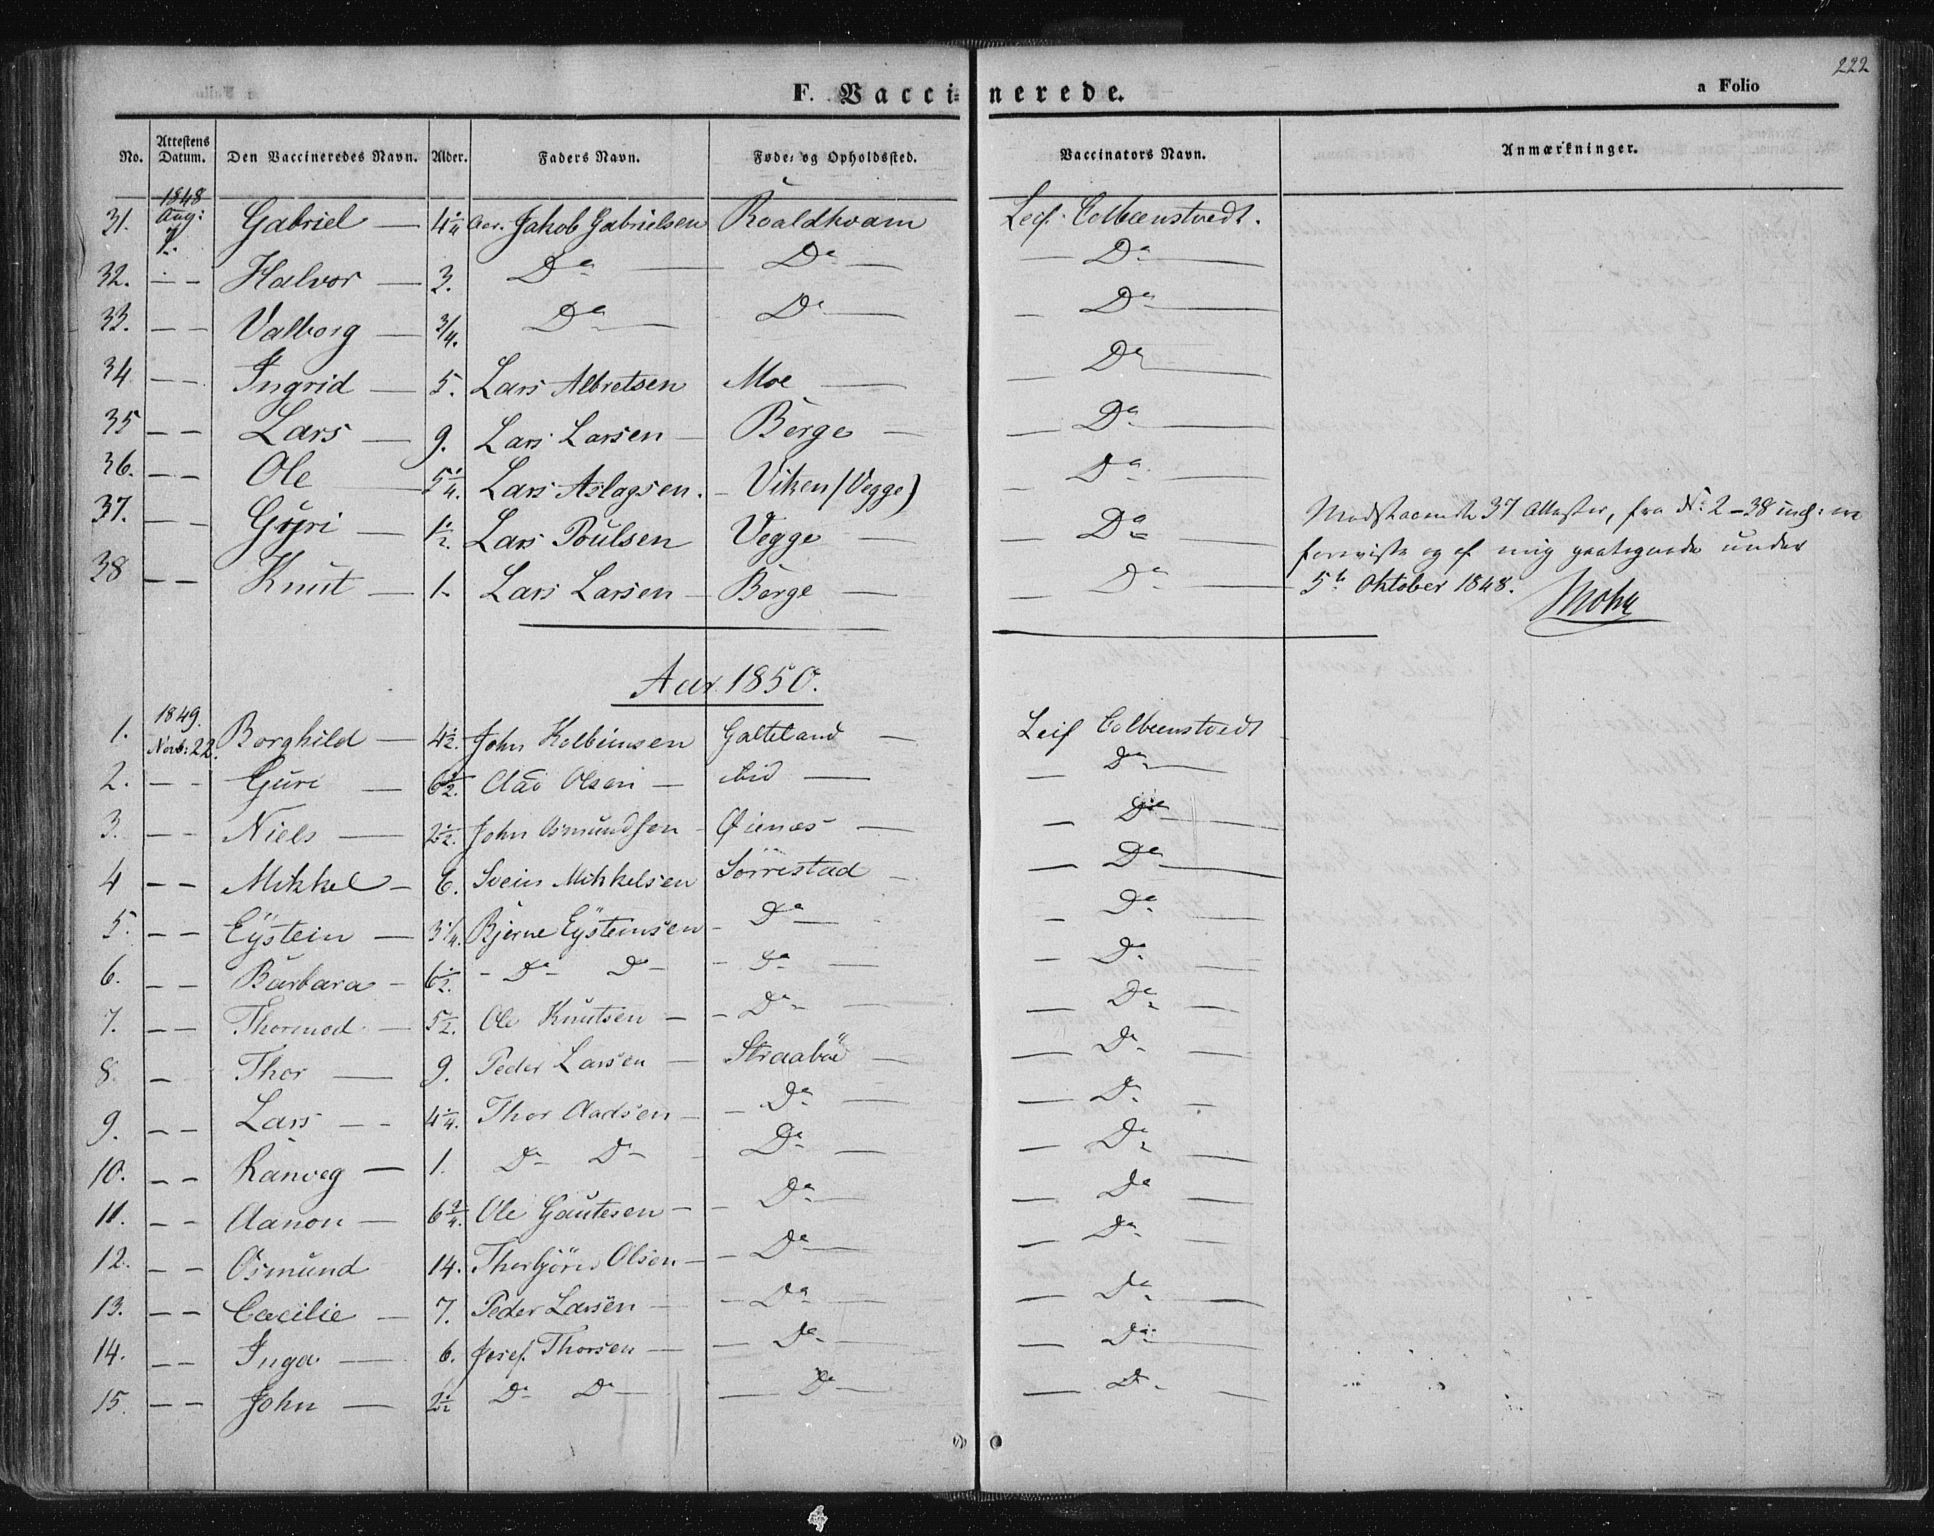 222
F. Vaccinerede.
a Folio
No. Attestens Datum. Den Vaccineredes Navn. Alder. Faders Navn. Føde- og Opholdssted. Vaccinators Navn. Anmærkninger.
1848
31. Aug: Gabriel — 4 1/4 Jakob Gabrielsen Roaldkvam Leif Colbeenstvedt.
32. — — Halvor — 3. Do — Do — — Do —
33. — — Valborg — 3/4. Do — Do — — Do —
34 — — Ingrid — 5. Lars Albretsen Moe — — Do —
35 — — Lars — 9. Lars Larsen — Berge — — Do —
36. — — Ole 5 1/4. Lars Aslagsen. — Viken (Vegge) — Do —
37. — — Guri — 1/2. Lars Poulsen Vegge — — Do — 37 Attester, fra No 2–38 incl:
og af mig under
38 — — Knut — 1. Lars Larsen — Berge — — Do — 5te Oktober 1848.
Aar 1850.
1849.
1. Novb: 22. Borghild — 4 1/2. John Kolbeinsen Galteland — Leif Colbeenstvedt
2. — — Guri — 6 1/2. Olsen — ibid — — Do —
3. — — Niels — 2 1/2. John Osmundsen — Øienæs — — Do —
4 — — Mikkel — 6. Svein Mikkelsen Sørrestad — — Do —
5. — — Eÿstein — 3 1/4. Bjerne Eÿsteinsen — Do — — Do —
6. — — Barbara — 6 1/2. — Do — Do — — Do — — Do —
7. — — Thormod — 5 1/2. Ole Knutsen — — Do — — Do —
8. — Thor — 9. Peder Larsen — Straabøe — — Do —
9. — — Lars — — 4 1/4. Thor Aadsen — — Do — — Do —
10. — — Ranveg — 1. Do — Do — — Do — — Do —
11. — — Aanon — 6 3/4. Ole Gautesen — — Do — — Do —
12. — — Osmund 14. Thorbjörn Olsen — — Do — — Do —
13. — — Cæcilie — 7. Peder Larsen — — Do — — Do —
14. — — Inga — 6. Josef Thorsen — — Do — — Do —
15. — — John — 2 1/2 Do — Do — — Do — — Do —